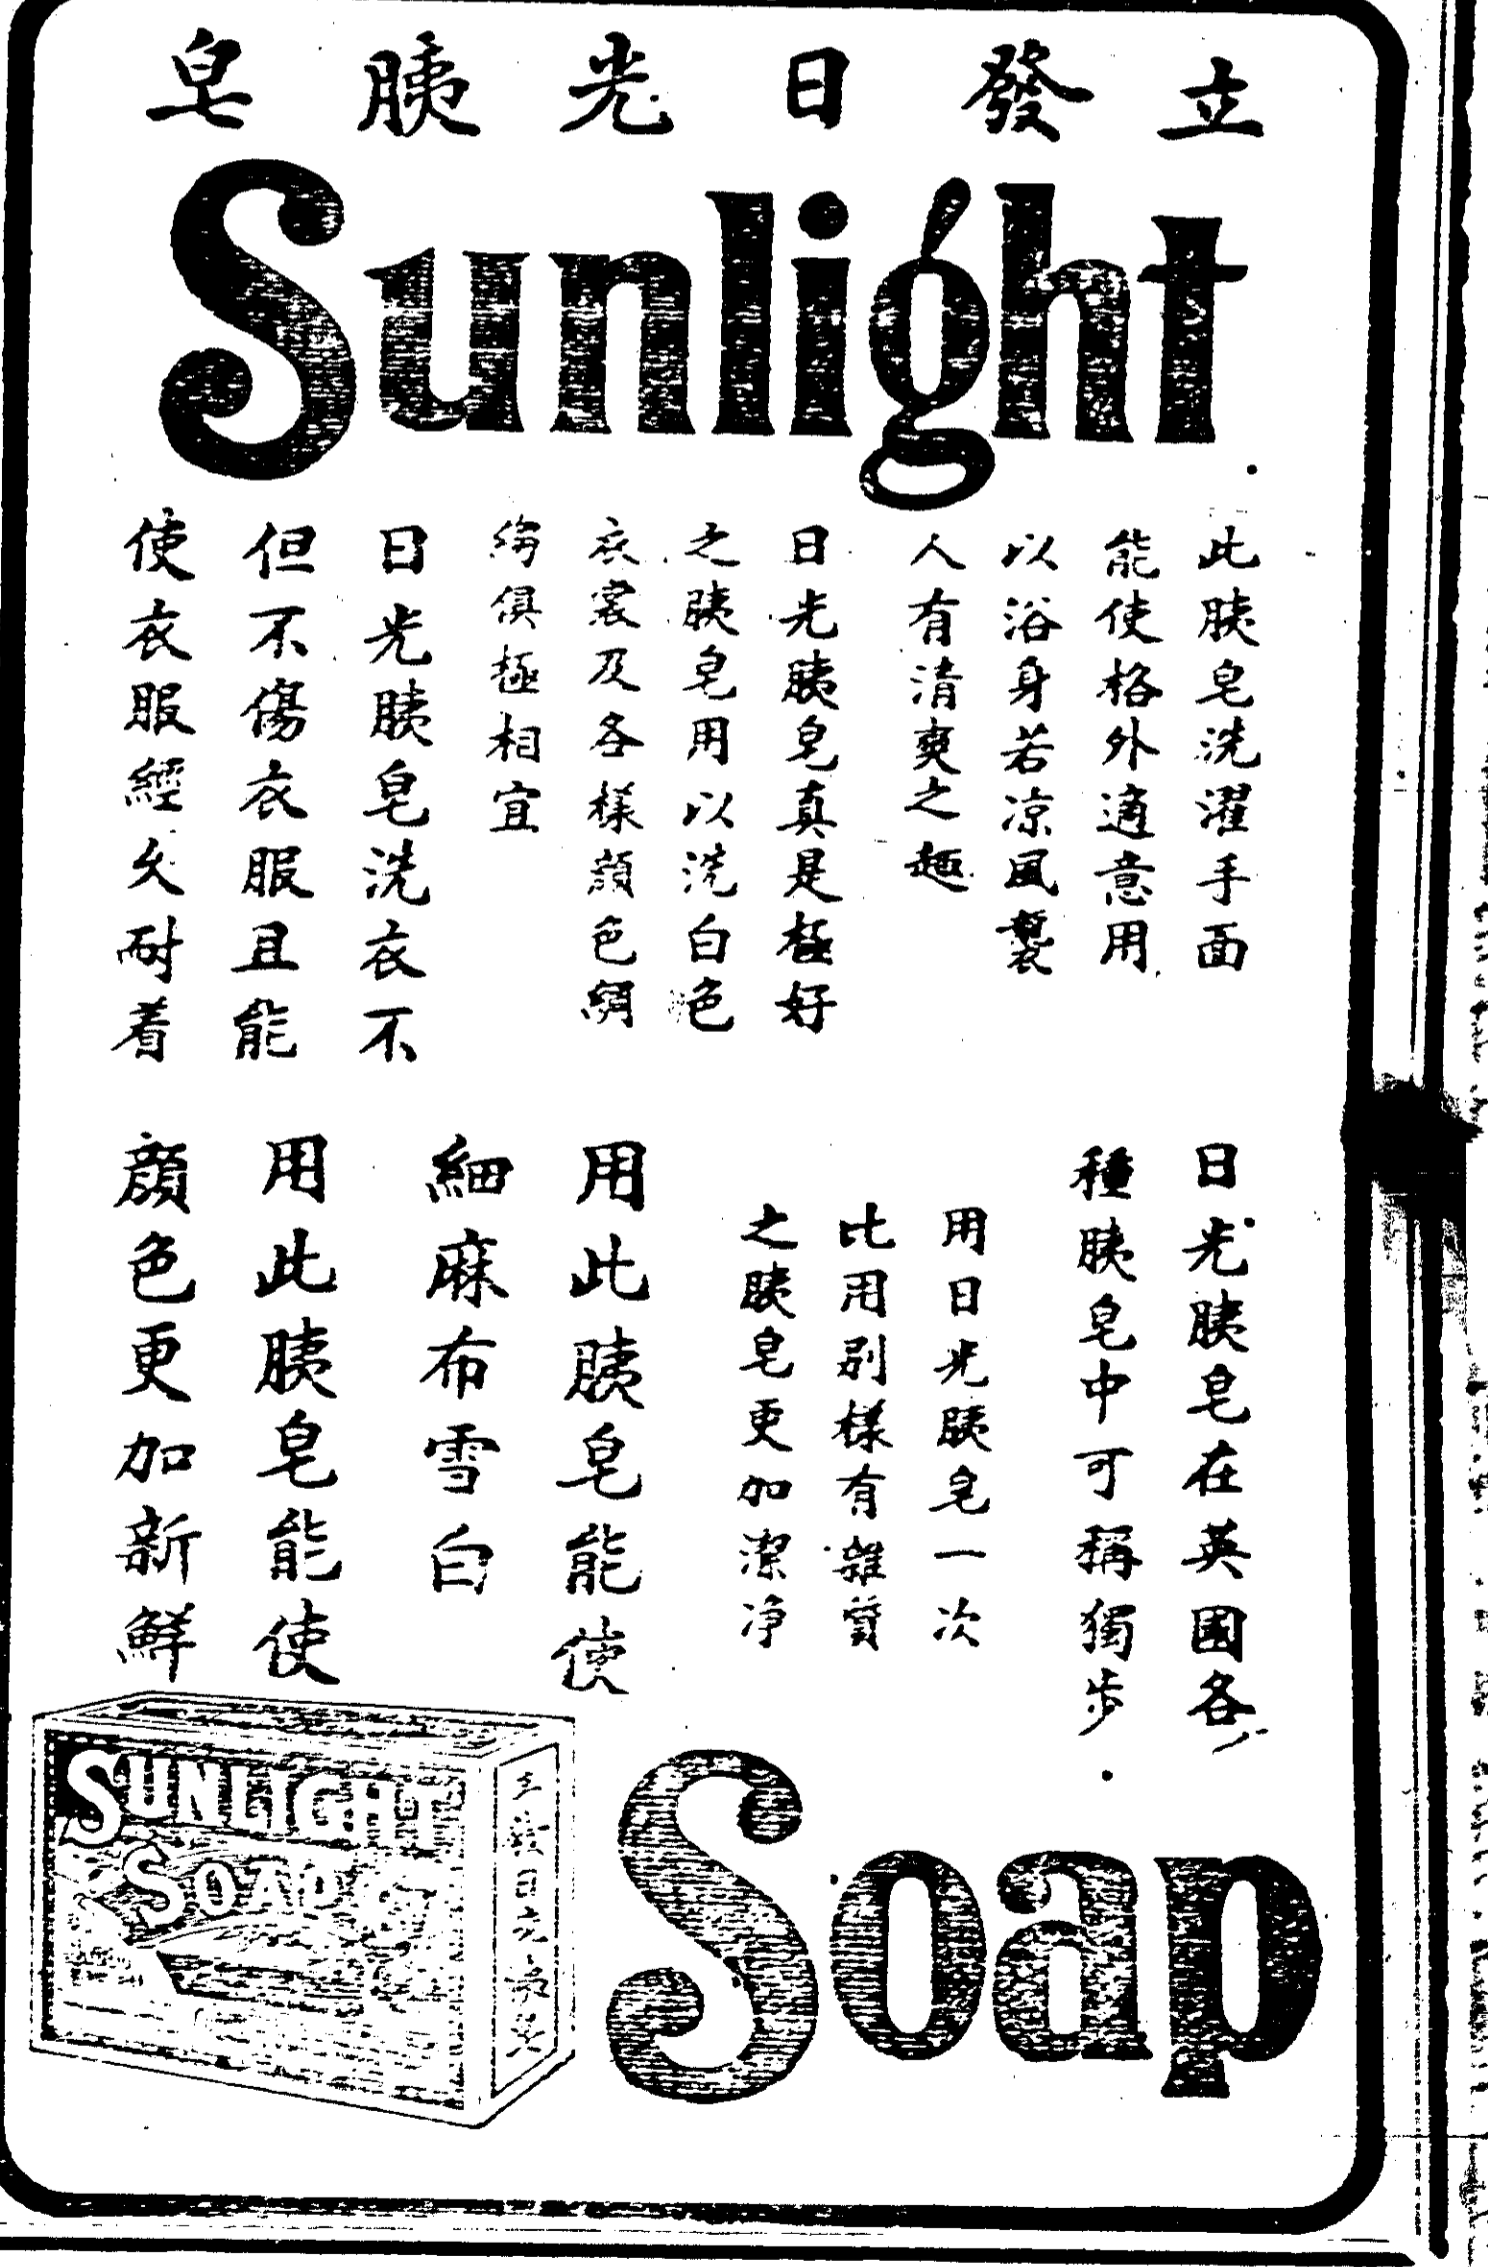 立發日光胰皂
Sunlight
此胰皂洗濯手面
能使格外適意用
以浴身若凉風襲
人有清爽之趣
日光胰皂真是極好
之胰皂用以洗白色
衣裳及各樣顔色綢
縐俱極相宜
日光胰皂洗衣不
但不傷衣服且能
使衣服經久耐着
日光胰皂在英國各
種胰皂中可稱獨步
用日光胰皂一次
比用別樣有雜質
之胰皂更加潔净
用此胰皂能使
細麻布雪白
用此胰皂能使
顔色更加新鮮
Soap
SUNLIGHT
SOAP
立發日光胰皂